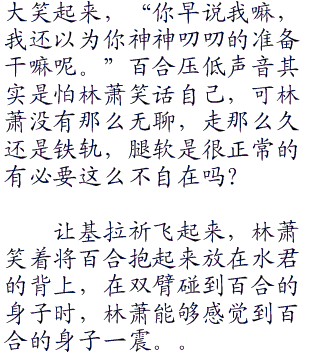 大笑起来，“你早说我嘛，
我还以为你神神叨叨的准备
干嘛呢。”百合压低声音其
实是怕林萧笑话自己，可林
萧没有那么无聊，走那么久
还是铁轨，腿软是很正常的
有必要这么不自在吗？
让基拉祈飞起来，林萧
笑着将百合抱起来放在水君
的背上，在双臂碰到百合的
身子时，林萧能够感觉到百
合的身子一震。。